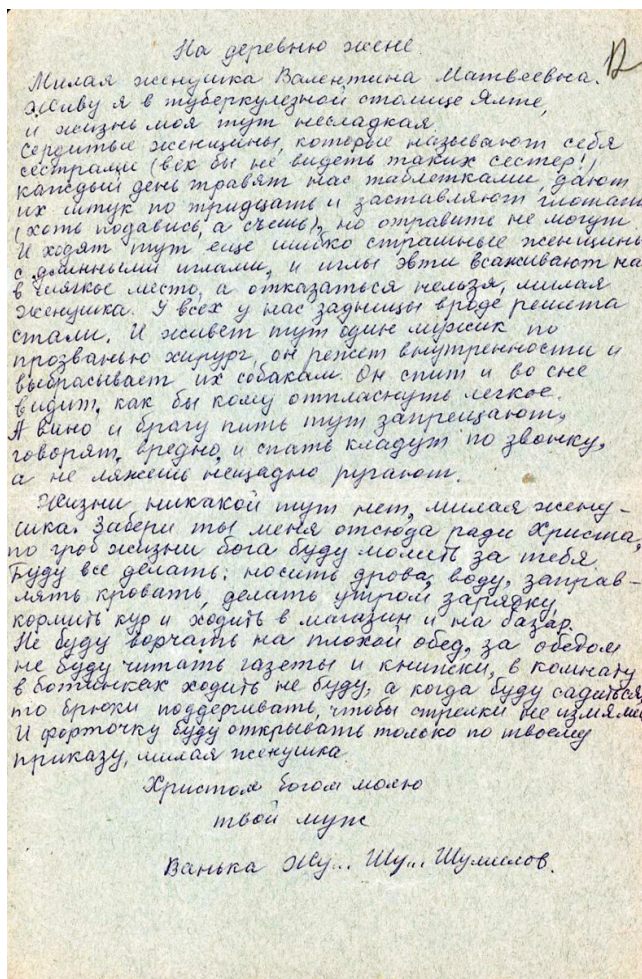 На деревню жене.
12
Милая женушка Валентина Матвеевна.
Живу я в туберкулезной столице Ялте,
и жизнь моя тут несладкая.
Сердитые женщины, которые называют себя
сестрами (век бы не видеть таких сестер!),
каждый день травят нас таблетками, дают
их штук по тридцать и заставляют глотать
(хоть подавись, а съешь), но отравить не могут.
И ходят тут еще шибко страшные женщины
с длинными иглами, и иглы эвти всаживают нам
в мягкое место, а отказаться нельзя, милая
женушка. У всех у нас задницы вроде решета
стали. И живет тут один мужик по
прозванью хирург, он режет внутренности и
выбрасывает их собакам. Он спит и во сне
видит, как бы кому оттяпнуть легкое.
А вино и брагу пить тут запрещают,
говорят, вредно, и спать кладут по звонку,
а не ляжешь нещадно ругают.
Жизни никакой тут нет, милая жену-
шка. Забери ты меня отсюда ради Христа,
по гроб жизни бога буду молить за тебя.
Буду все делать: носить дрова, воду, заправ-
лять кровать, делать утром зарядку,
кормить кур и ходить в магазин и на базар.
Не буду ворчать на плохой обед, за обедом
не буду читать газеты и книжки, в комнату
в ботинках ходить не буду, а когда буду садиться,
то брюки поддерживать, чтобы стрелки не измялись.
И форточку буду открывать только по твоему
приказу, милая женушка.
Христом богом молю
твой муж
Ванька Жу... Шу... Шумилов.